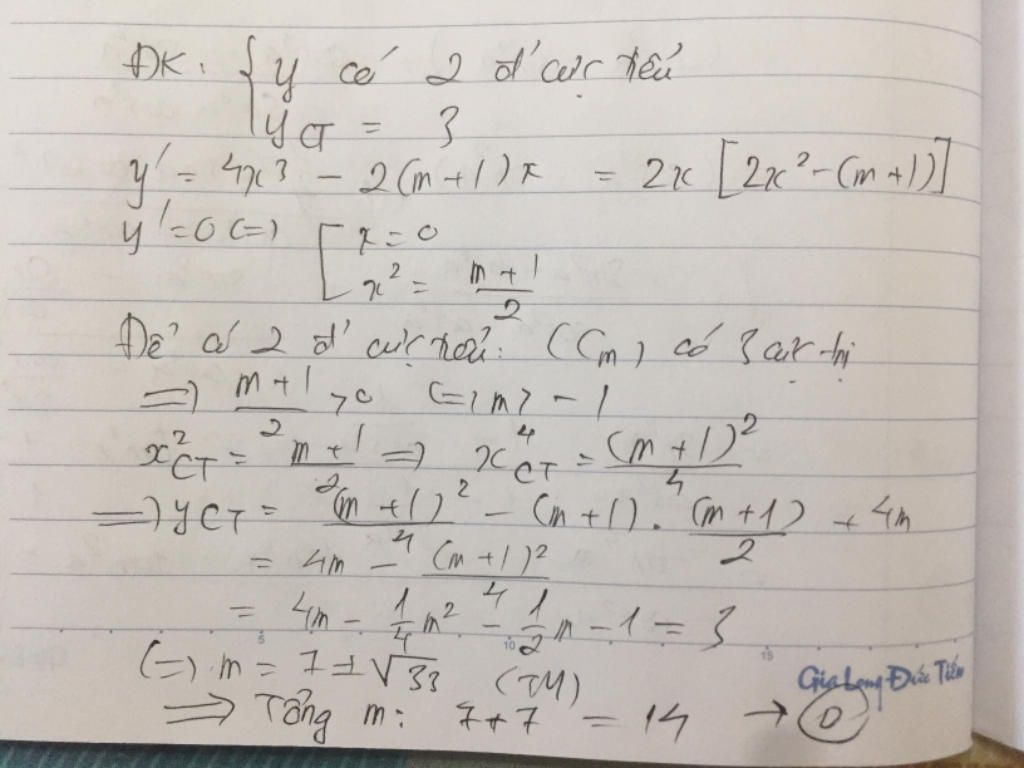 ĐK: { y có 2 đ' cực tiểu
y_CT = 3
y' = 4x³ - 2(m+1)x = 2x [2x² - (m+1)]
y' = 0 (=) [ x = 0
x² = (m+1)/2
Để có 2 đ' cực tiểu: (Cm) có 3 cực trị
=> (m+1)/2 > 0 (=) m > -1
x²_CT = (m+1)/2 => x⁴_CT = (m+1)²/4
=> y_CT = (m+1)²/4 - (m+1) . (m+1)/2 + 4m
= 4m - (m+1)²/4
= 4m - 1/4 m² - 1/2 m - 1 = 3
5 10 15
(=) m = 7 ± √33 (TM)
Gia Long Đức Tiến
=> Tổng m: 7 + 7 = 14 → D